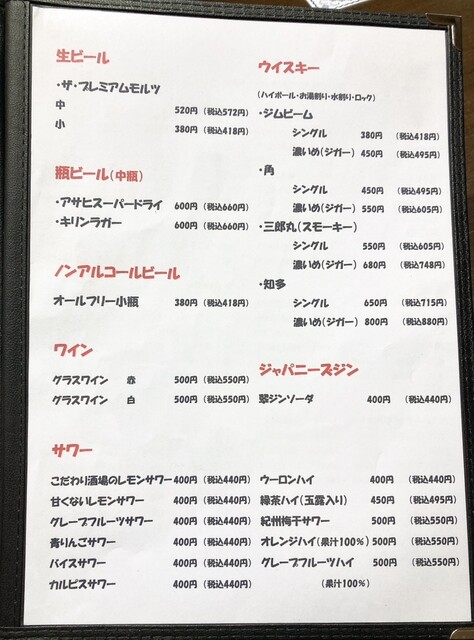 生ビール
・ザ・プレミアムモルツ
中 520円(税込572円)
小 380円(税込418円)
瓶ビール(中瓶)
・アサヒスーパードライ 600円(税込660円)
・キリンラガー 600円(税込660円)
ノンアルコールビール
オールフリー小瓶 380円(税込418円)
ワイン
グラスワイン 赤 500円(税込550円)
グラスワイン 白 500円(税込550円)
ウイスキー
(ハイボール・お湯割り・水割り・ロック)
・ジムビーム
シングル 380円 (税込418円)
濃いめ(ジガー) 450円 (税込495円)
・角
シングル 450円 (税込495円)
濃いめ(ジガー) 550円 (税込605円)
・三郎丸(スモーキー)
シングル 550円 (税込605円)
濃いめ(ジガー) 680円 (税込748円)
・知多
シングル 650円 (税込715円)
濃いめ(ジガー) 800円 (税込880円)
ジャパニーズジン
翠ジンソーダ 400円 (税込440円)
サワー
こだわり酒場のレモンサワー 400円(税込440円)
甘くないレモンサワー 400円(税込440円)
グレープフルーツサワー 400円(税込440円)
青りんごサワー 400円(税込440円)
バイスサワー 400円(税込440円)
カルピスサワー 400円(税込440円)
ウーロンハイ 400円 (税込440円)
緑茶ハイ(玉露入り) 450円 (税込495円)
紀州梅干サワー 500円 (税込550円)
オレンジハイ(果汁100%) 500円 (税込550円)
グレープフルーツハイ 500円 (税込550円)
(果汁100%)